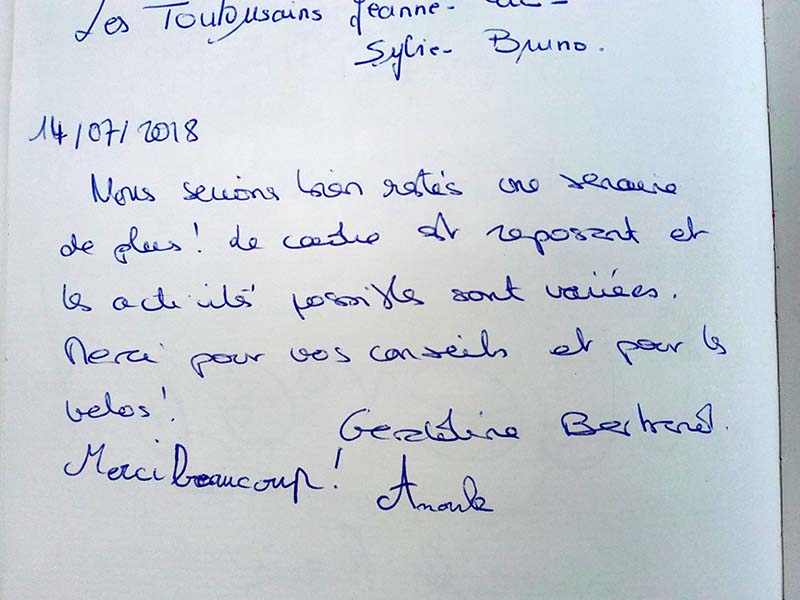 Les Toulousains Jeanne-
Sylvie- Bruno.
14/07/2018
Nous serions bien restés une semaine
de plus! Le cadre est reposant et
les activités possibles sont variées.
Merci pour vos conseils et pour les
velos!
Géraldine Bertrand.
Merci beaucoup!
Anouk